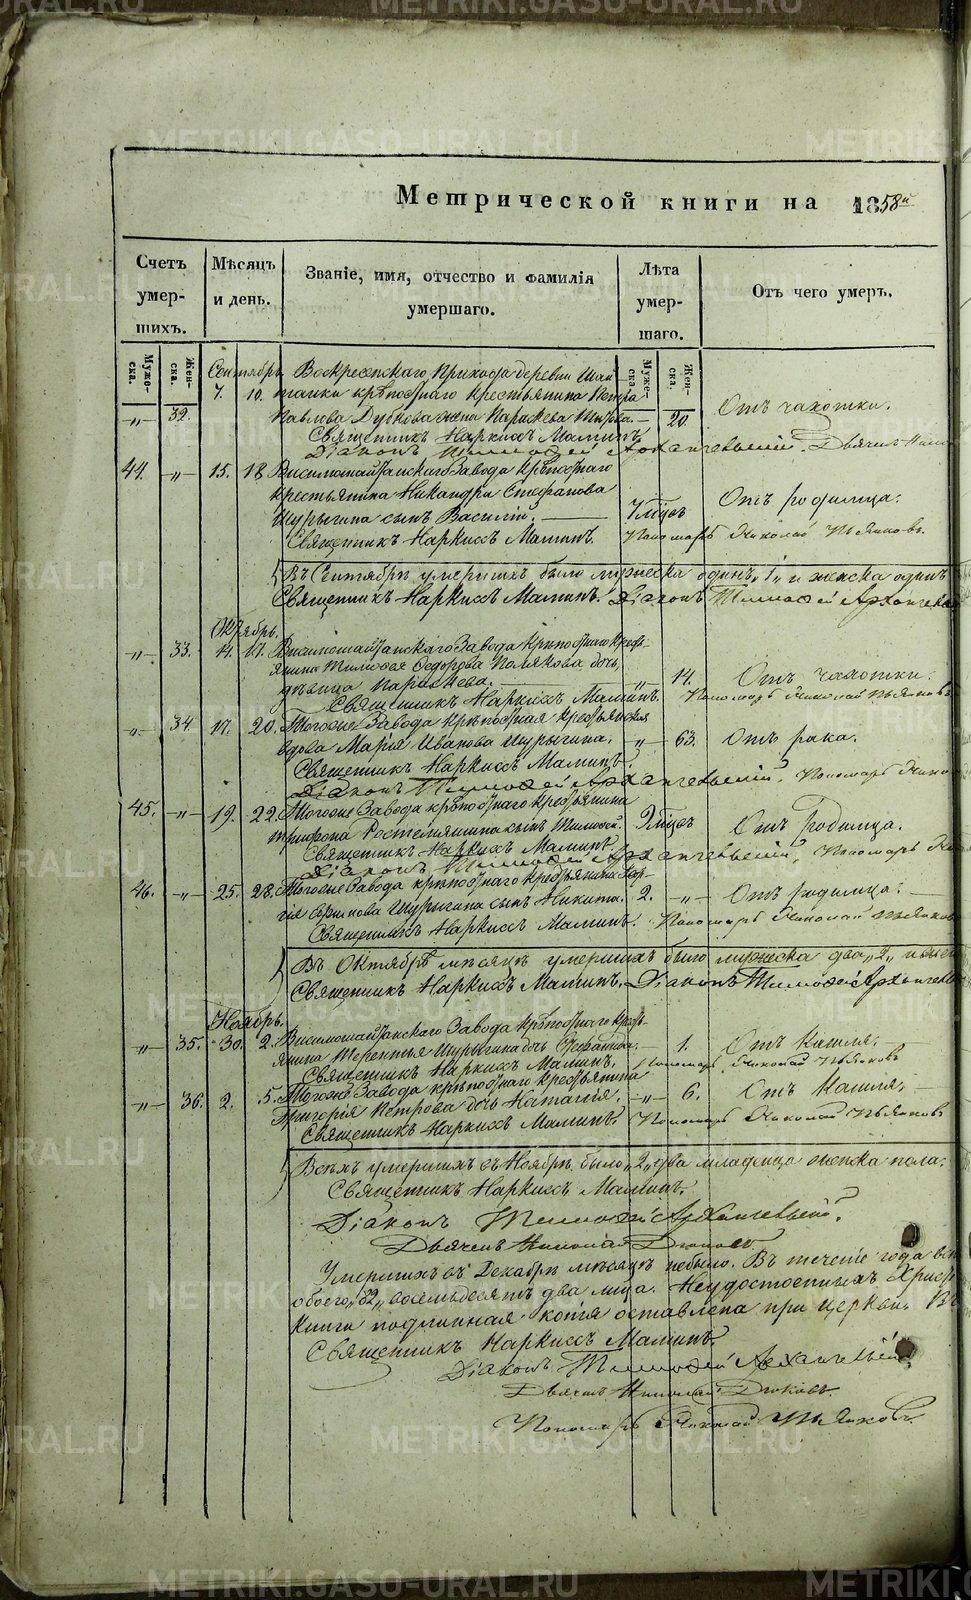 METRIKI.GASO-URAL.RU
Метрической книги на 1858й
Счетъ умер- шихъ.
Мѣсяцъ и день.
Званіе, имя, отчество и фамилія умершаго.
Лѣта умер- шаго.
Отъ чего умеръ.
Муже- ска.
Жен- ска.
Муже- ска.
Жен- ска.
Сентябрь.
Воскресенскаго Прихода деревни Шай-
7. 10. танки крѣпостнаго крестьянина Петра
„ 32. Павлова жена 20. Отъ чахотки.
Священникъ Наркисъ Маминъ.
Діаконъ Тимофей Архангельскій. Дьячекъ
44. „ 15. 18. Висимошайтанскаго Завода крѣпостнаго
крестьянина Никандра Стефанова
Шурыгина сынъ Василій. 7 мѣсяц Отъ родимца.
Священникъ Наркисъ Маминъ. Пономарь Николай Пьянковъ.
Въ Сентябрѣ умершихъ было мужеска одинъ „1„ и женска одинъ
Священникъ Наркисъ Маминъ. Діаконъ Тимофей Архангельскій
Октябрь.
„ 33. 14. 17. Висимошайтанскаго Завода крѣпостнаго кресть-
янина Тимофея Федорова Полякова дочь,
дѣвица Параскева. „ 14. Отъ чахотки.
Священникъ Наркисъ Маминъ. Пономарь Николай Пьянковъ
„ 34. 17. 20. Тогоже Завода крѣпостная крестьянская
вдова Марія Иванова Шурыгина. „ 63. Отъ рака.
Священникъ Наркисъ Маминъ.
Діаконъ Тимофей Архангельскій. Пономарь Нико
45. „ 19. 22. Тогоже Завода крѣпостнаго крестьянина
Трифона сынъ Тимофей. Отъ Родимца.
Священникъ Наркисъ Маминъ.
Діаконъ Тимофей Архангельскій. Пономарь
46. „ 25. 28. Тогоже Завода крѣпостнаго крестьянина
Шурыгина сынъ Никита. 2. „ Отъ родимца.
Священникъ Наркисъ Маминъ. Пономарь Николай Пьянков
Въ Октябрѣ мѣсяцѣ умершихъ было мужеска два „2„
Священникъ Наркисъ Маминъ. Діаконъ Тимофей Архангельс
Ноябрь.
„ 35. 30. 2. Висимошайтанскаго Завода крѣпостнаго кресть-
янина Терентья Шурыгина дочь 1. Отъ Кашля.
Священникъ Наркисъ Маминъ. Пономарь Николай Пьянковъ
„ 36. 2. 5. Тогоже Завода крѣпостнаго крестьянина
Григорія Петрова дочь Наталія. „ 6. Отъ Кашля.
Священникъ Наркисъ Маминъ. Пономарь Николай Пьянковъ
Всѣхъ умершихъ въ Ноябрѣ было „2„ два младенца женска пола.
Священникъ Наркисъ Маминъ.
Діаконъ Тимофей Архангельскій.
Дьячекъ Николай Дюковъ.
Умершихъ въ Декабрѣ мѣсяцѣ небыло. Въ теченіе года
обоего „82„ восемьдесятъ два лица. Неудостоенныхъ Христ
Книги подлинная копія оставлена при церкви. Въ
Священникъ Наркисъ Маминъ.
Діаконъ Тимофей Архангельскій.
Дьячекъ Николай Дюковъ.
Пономарь Николай Пьянковъ.